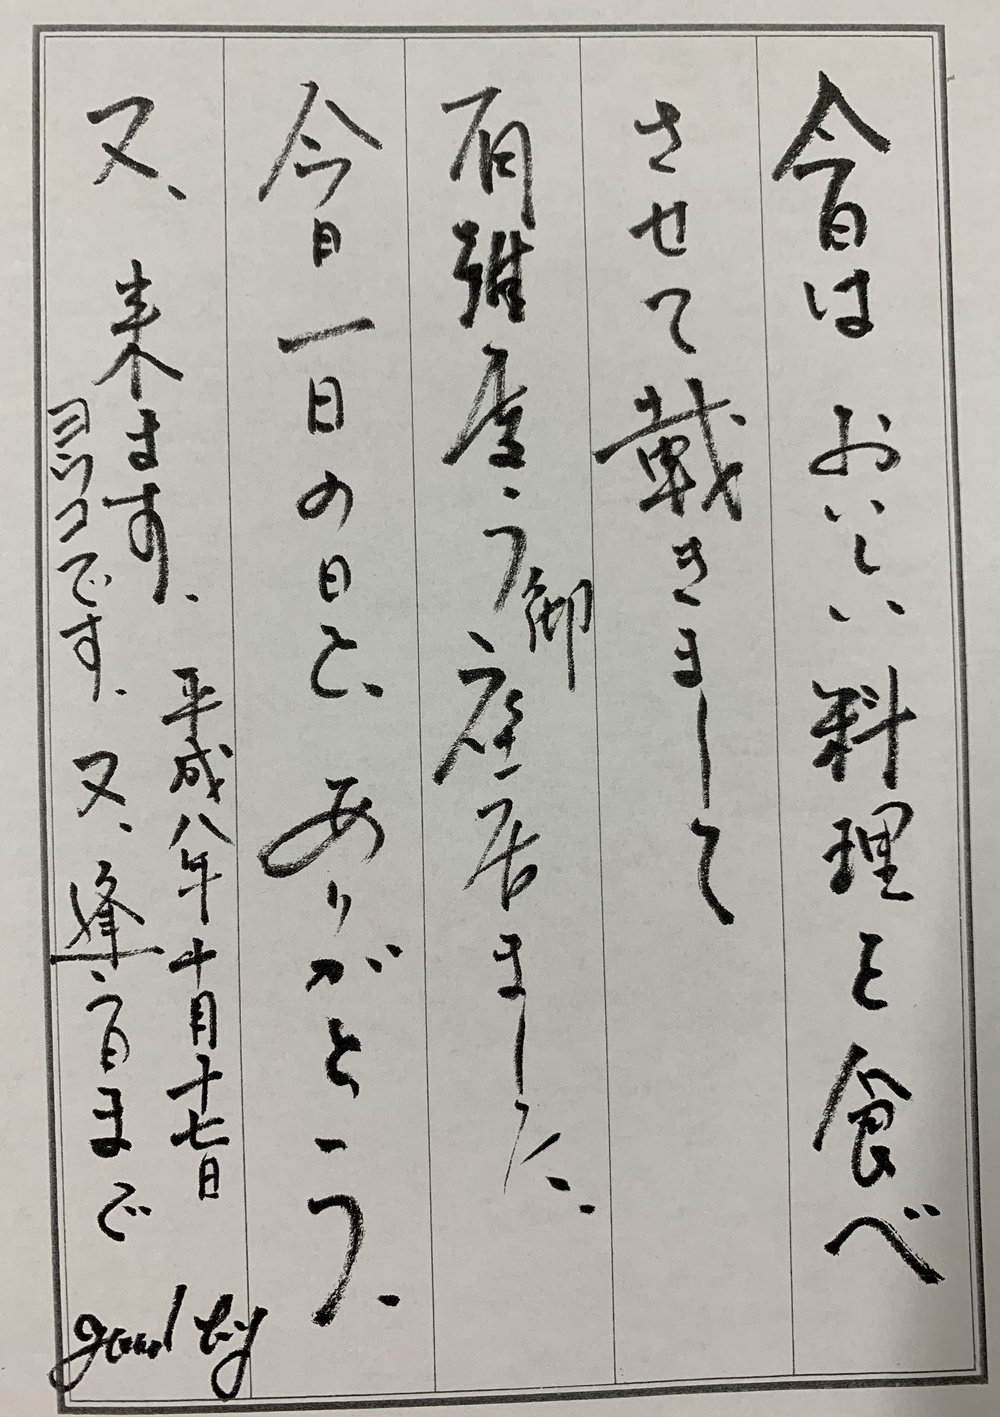 今日は おいしい料理を食べ
させて載きまして
有難度う御座居ました。
今日一日の日を、ありがとう。
又、来ます。
平成八年十月十七日
ヨツコです。又、逢う日まで
good by